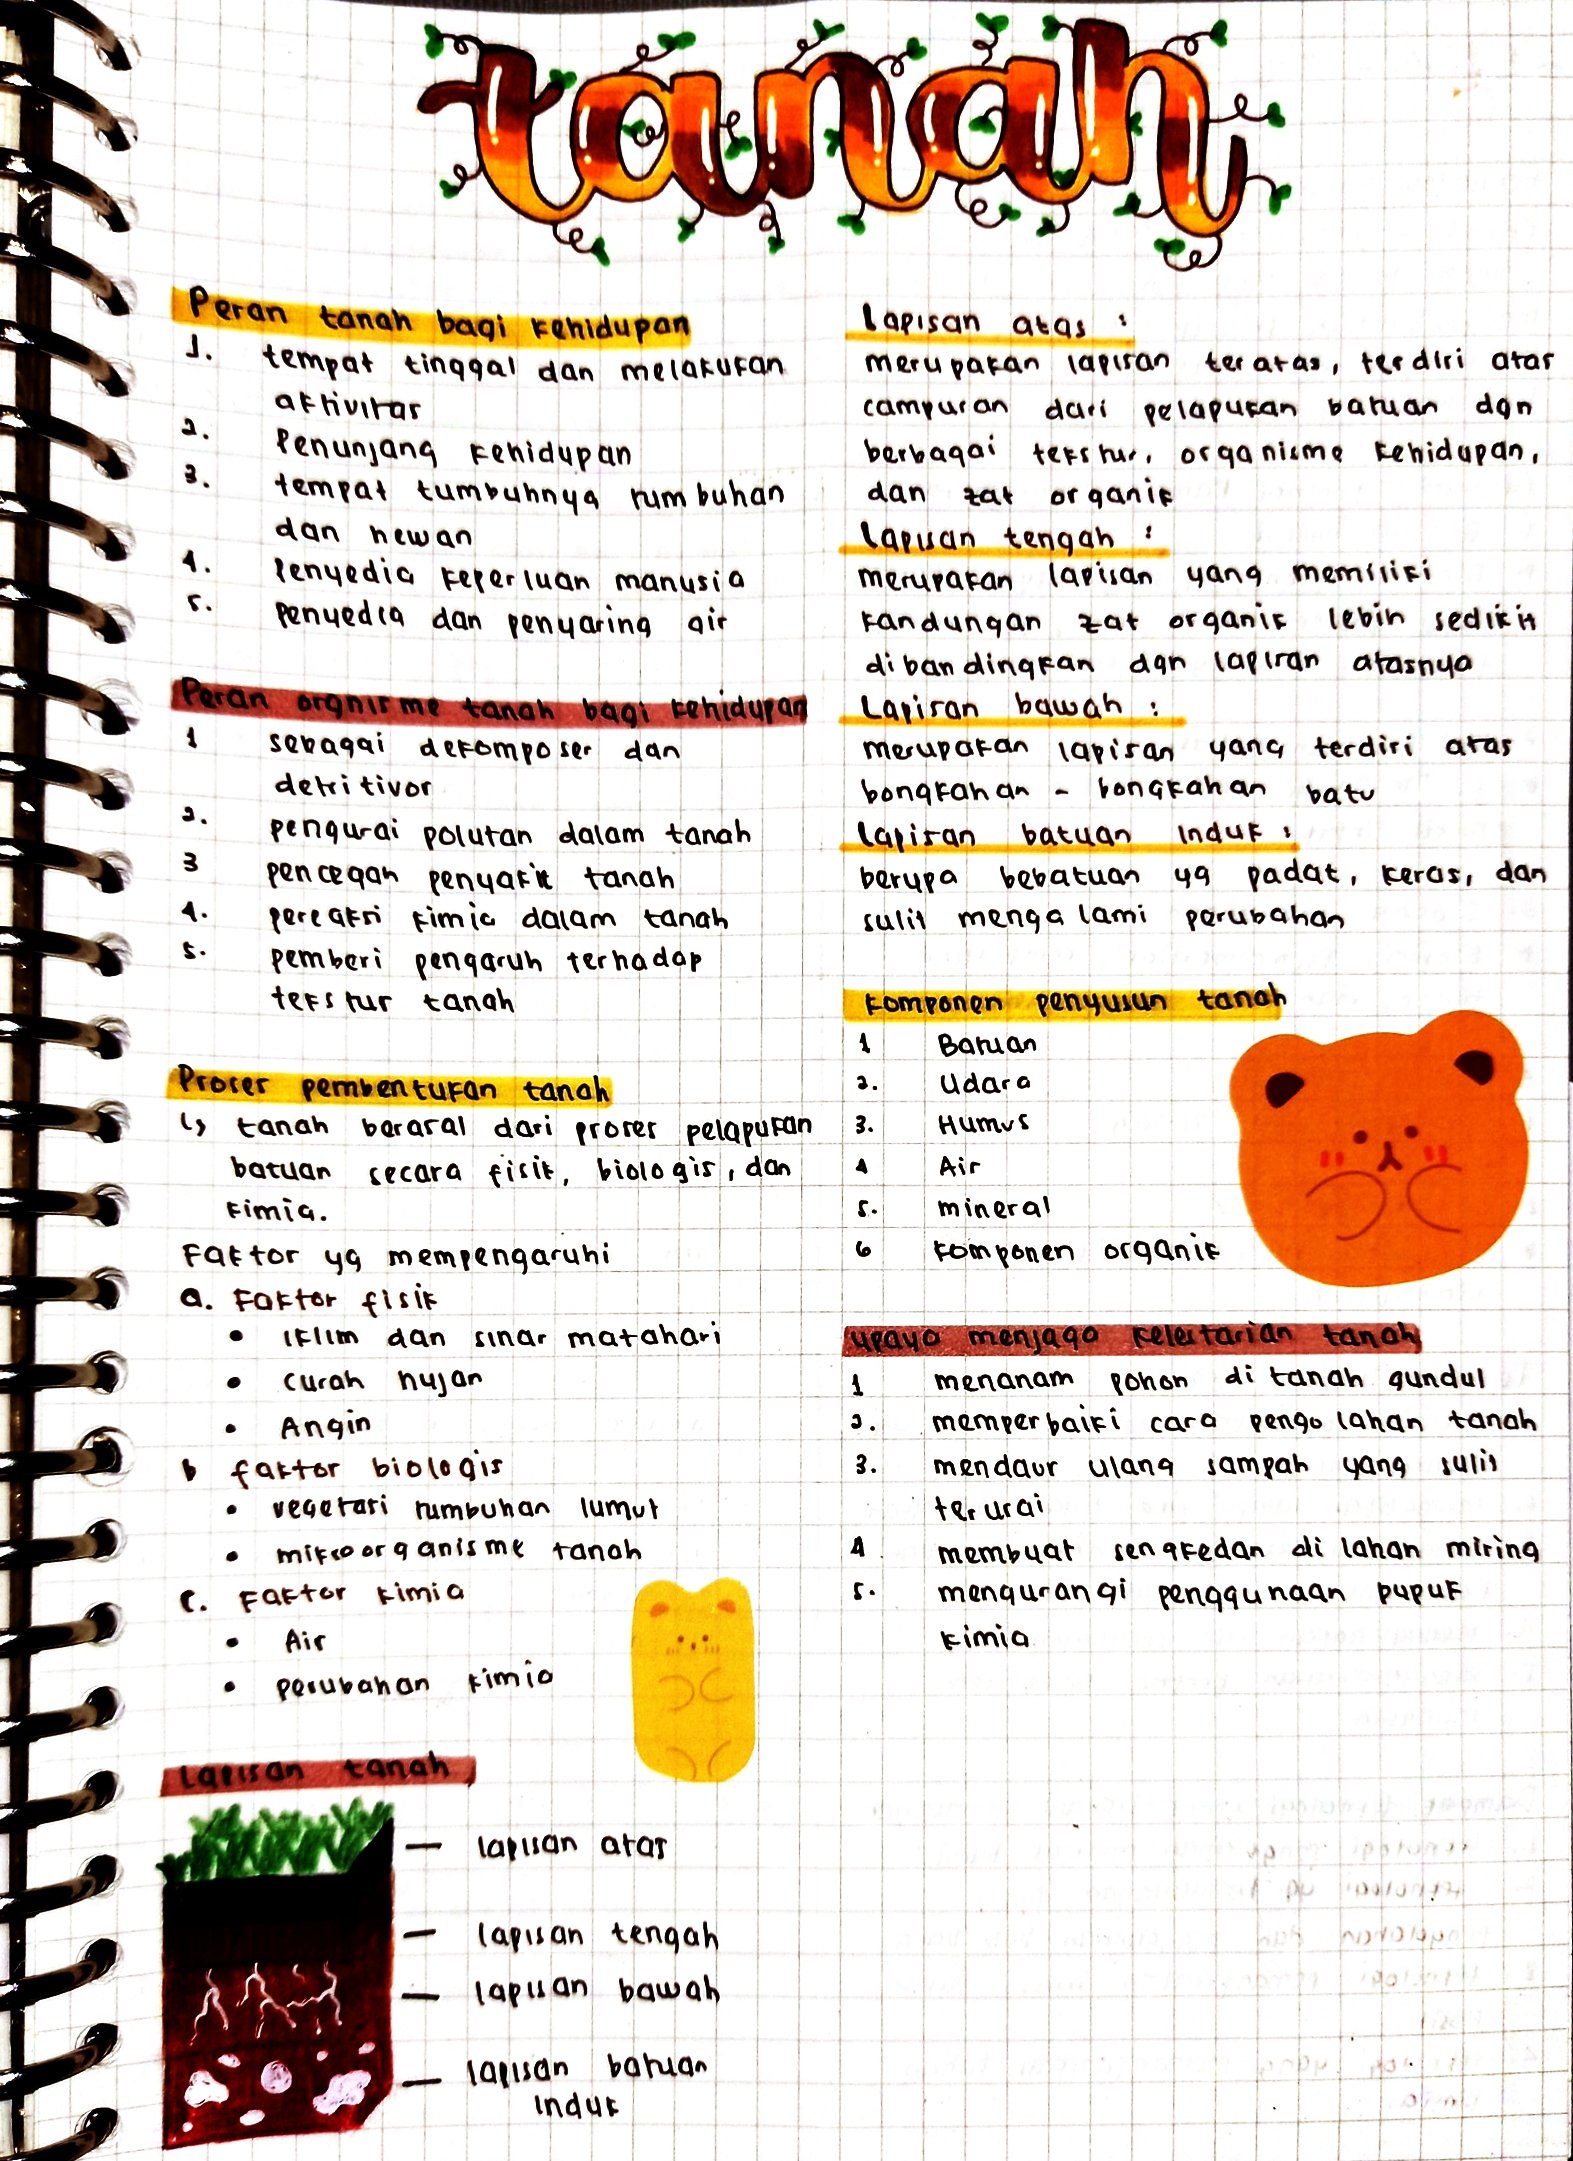 tanah
Peran tanah bagi kehidupan
1. tempat tinggal dan melakukan
aktivitas
2. Penunjang kehidupan
3. tempat tumbuhnya tumbuhan
dan hewan
4. Penyedia keperluan manusia
5. penyedia dan penyaring air
Peran orgnisme tanah bagi kehidupan
1 sebagai dekomposer dan
detritivor
2. pengurai polutan dalam tanah
3 pencegah penyakit tanah
4. pereaksi kimia dalam tanah
5. pemberi pengaruh terhadap
tekstur tanah
Proses pembentukan tanah
↳ tanah berasal dari proses pelapukan
batuan secara fisik, biologis, dan
kimia.
Faktor yg mempengaruhi
a. Faktor fisik
• iklim dan sinar matahari
• curah hujan
• Angin
b faktor biologis
• vegetasi tumbuhan lumut
• mikroorganisme tanah
c. Faktor kimia
• Air
• perubahan kimia
Lapisan tanah
lapisan atas
lapisan tengah
lapisan bawah
lapisan batuan
induk
Lapisan atas :
merupakan lapisan teratas, terdiri atas
campuran dari pelapukan batuan dgn
berbagai tekstur, organisme kehidupan,
dan zat organik
Lapisan tengah :
merupakan lapisan yang memiliki
kandungan zat organik lebih sedikit
dibandingkan dgn lapisan atasnya
Lapisan bawah :
merupakan lapisan yang terdiri atas
bongkahan - bongkahan batu
Lapisan batuan induk :
berupa bebatuan yg padat, keras, dan
sulit mengalami perubahan
Komponen penyusun tanah
1 Batuan
2. Udara
3. Humus
4 Air
5. mineral
6 komponen organik
upaya menjaga kelestarian tanah
1 menanam pohon di tanah gundul
2. memperbaiki cara pengolahan tanah
3. mendaur ulang sampah yang sulit
terurai
4 membuat sengkedan di lahan miring
5. mengurangi penggunaan pupuk
kimia